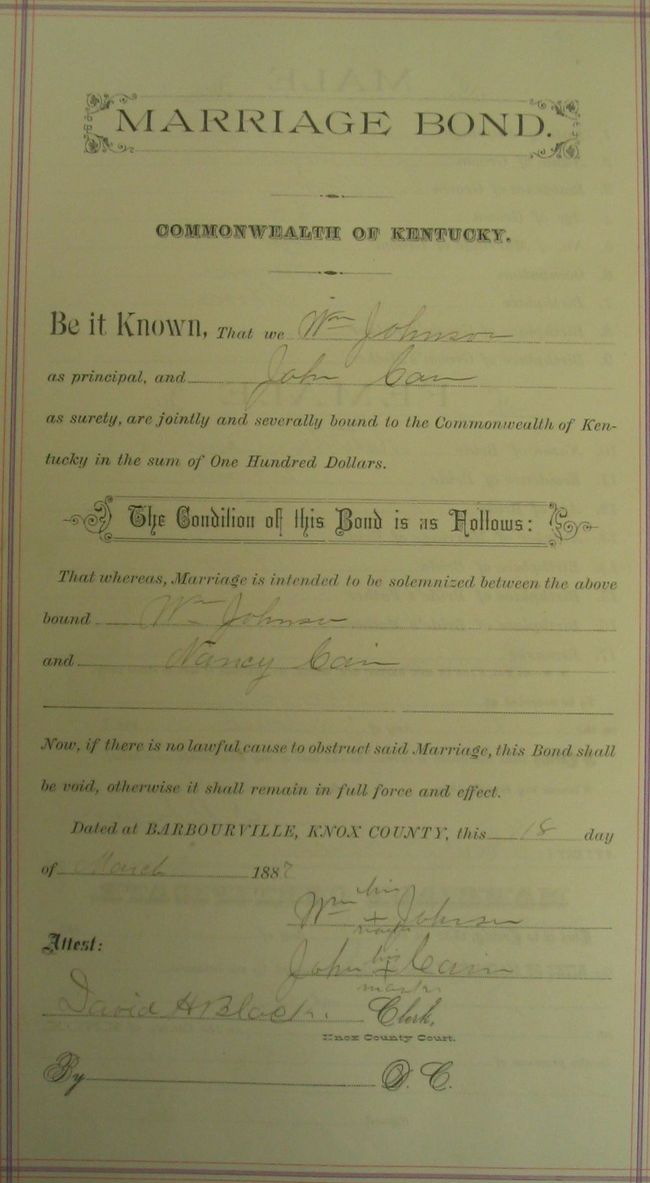 MARRIAGE BOND.
COMMONWEALTH OF KENTUCKY.
Be it Known, That we Wm Johnson
as principal, and John Cain
as surety, are jointly and severally bound to the Commonwealth of Ken-
tucky in the sum of One Hundred Dollars.
The Condition of this Bond is as Follows:
That whereas, Marriage is intended to be solemnized between the above
bound Wm Johnson
and Nancy Cain
Now, if there is no lawful cause to obstruct said Marriage, this Bond shall
be void, otherwise it shall remain in full force and effect.
Dated at BARBOURVILLE, KNOX COUNTY, this 18 day
of March 1887
his
Wm + Johnson
mark
Attest:
his
John + Cain
mark
David H Black. Clerk,
Knox County Court.
By D. C.